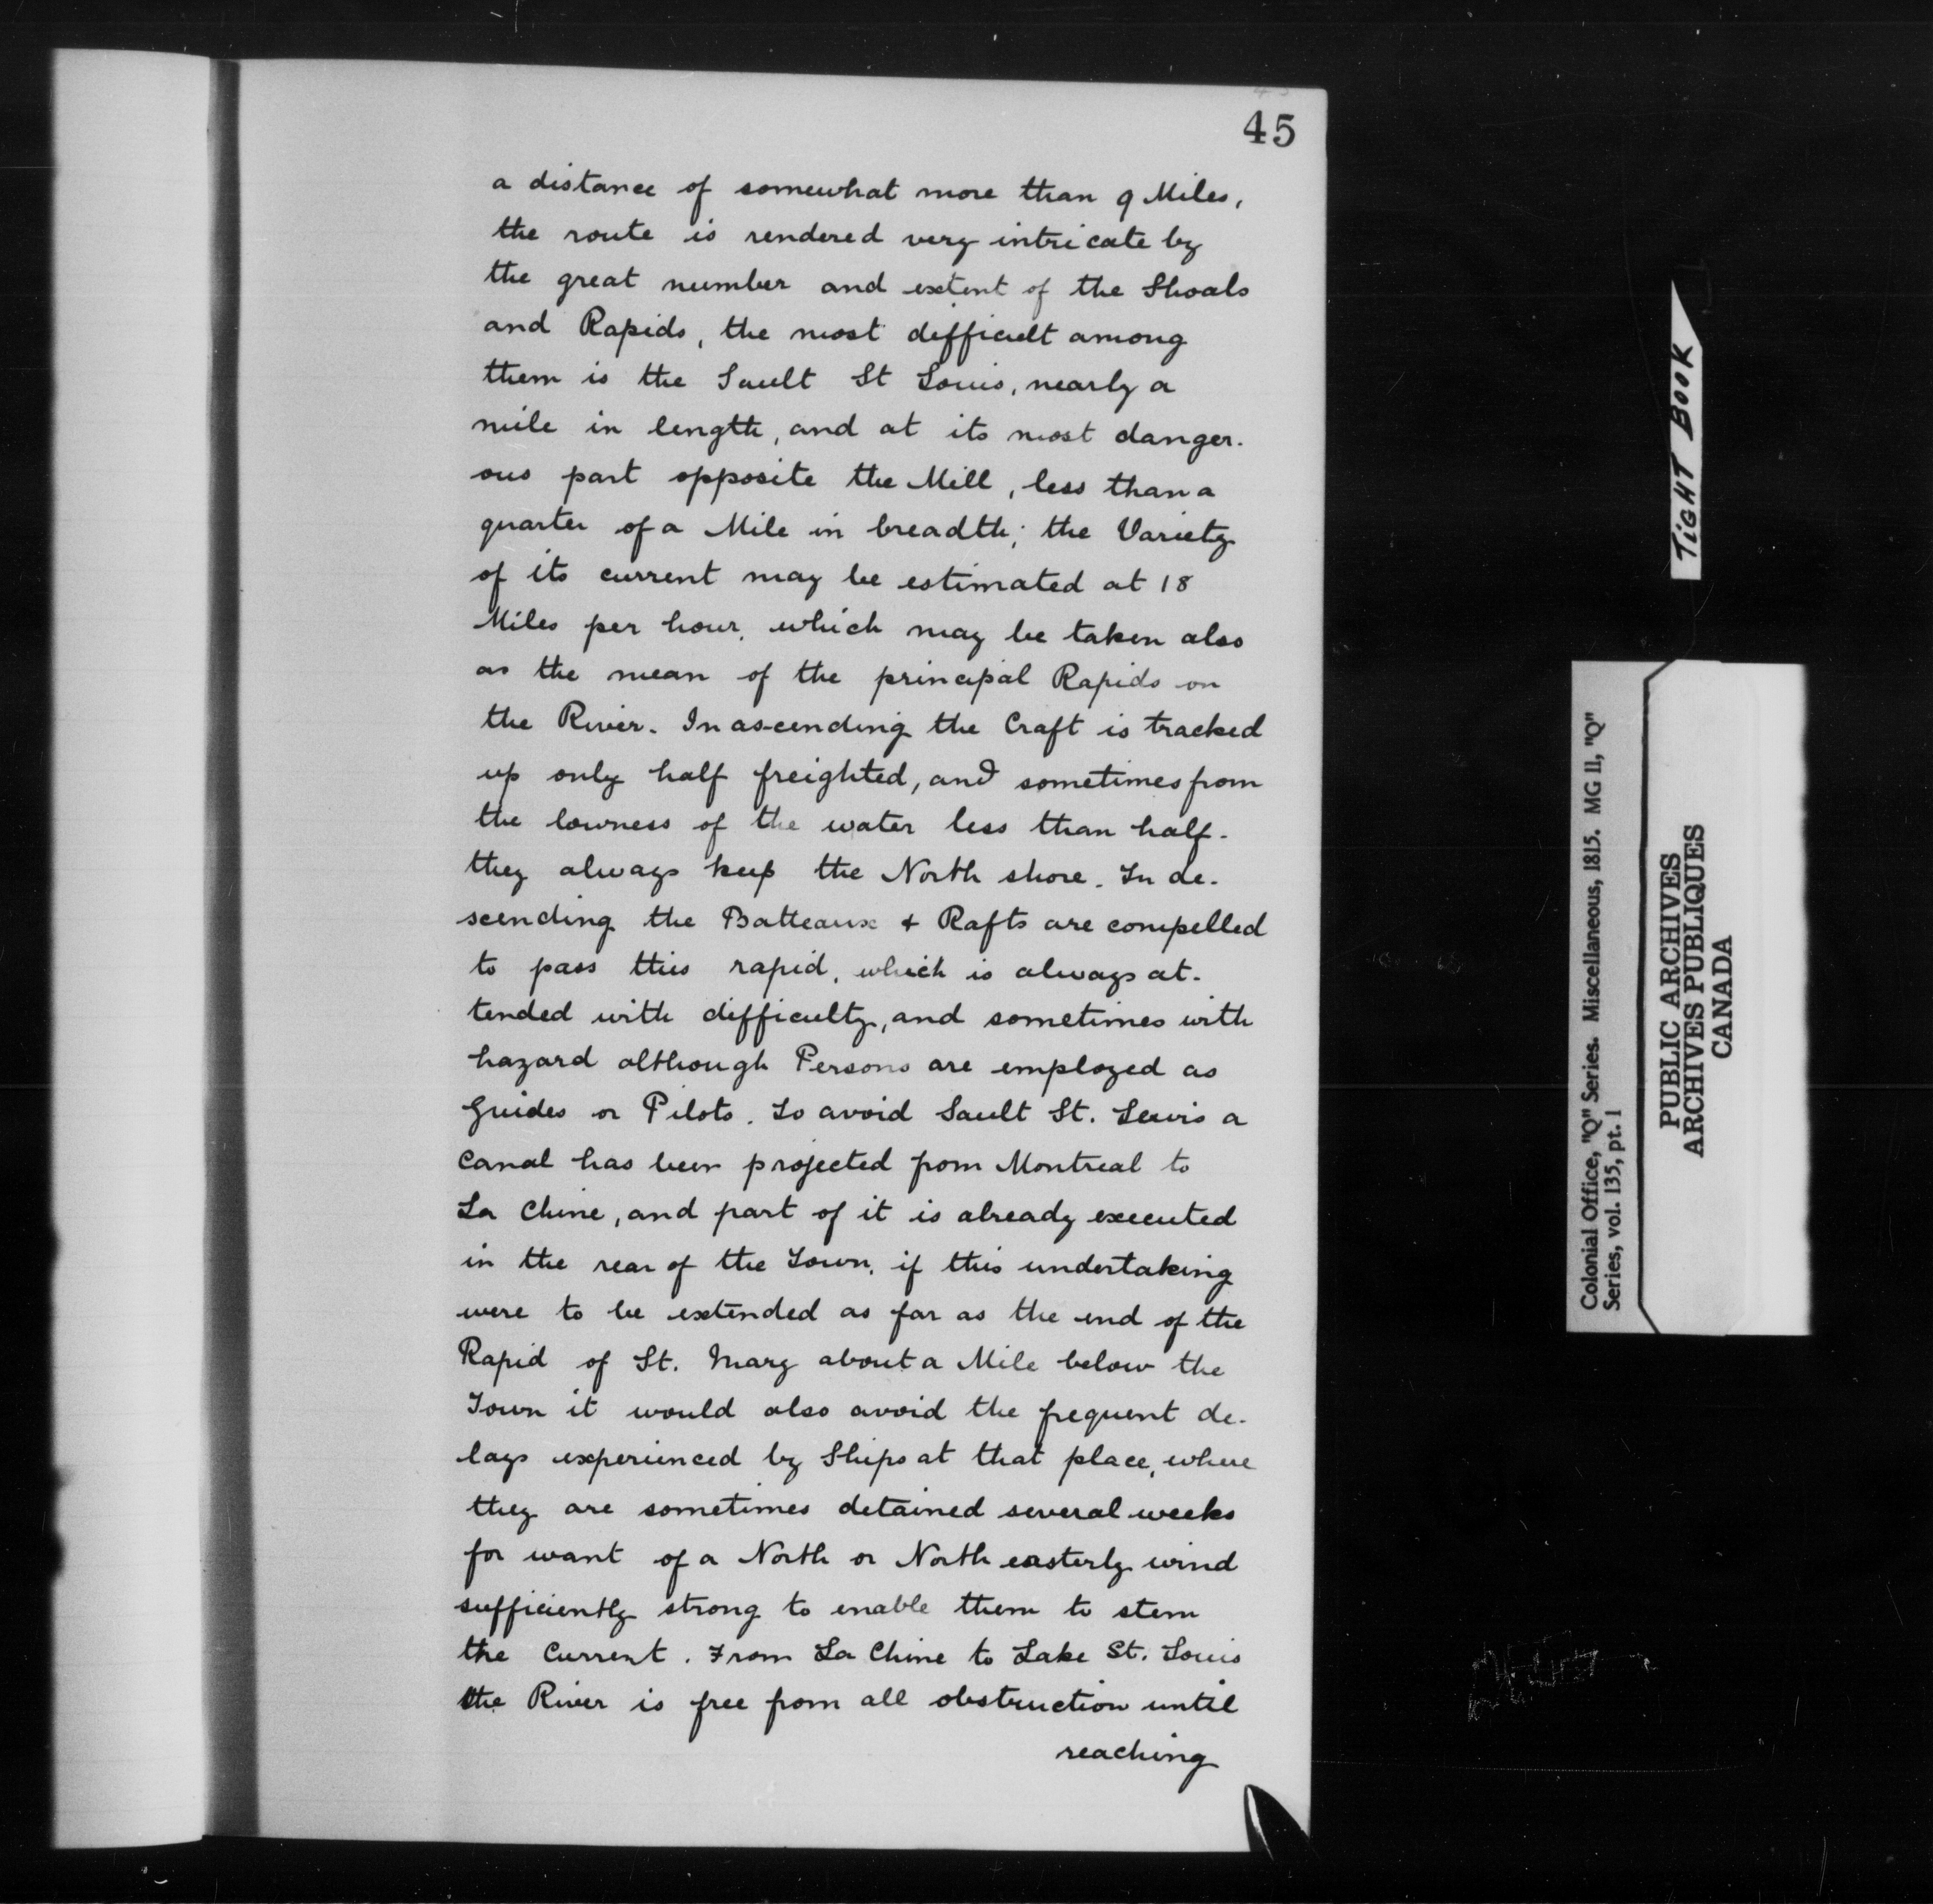 45
a distance of somewhat more than 9 Miles,
the route is rendered very intricate by
the great number and extent of the Shoals
and Rapids, the most difficult among
them is the Sault St Louis, nearly a
mile in length, and at its most danger-
ous part opposite the Mill, less than a
quarter of a Mile in breadth; the Variety
of its current may be estimated at 18
Miles per hour, which may be taken also
as the mean of the principal Rapids on
the River. In ascending the Craft is tracked
up only half freighted, and sometimes from
the lowness of the water less than half-
they always keep the North shore. In de-
scending the Batteaux + Rafts are compelled
to pass this rapid, which is always at-
tended with difficulty, and sometimes with
hazard although Persons are employed as
Guides or Pilots. To avoid Sault St. Lewis a
Canal has been projected from Montreal to
La Chine, and part of it is already executed
in the rear of the Town, if this undertaking
were to be extended as far as the end of the
Rapid of St. Mary about a Mile below the
Town it would also avoid the frequent de-
lays experienced by Ships at that place, where
they are sometimes detained several weeks
for want of a North or North easterly wind
sufficiently strong to enable them to stem
the Current. From La Chine to Lake St. Louis
the River is free from all obstruction until
reaching
TIGHT BOOK
Colonial Office, "Q" Series. Miscellaneous, 1815. MG 11, "Q"
Series, vol. 135, pt. 1
PUBLIC ARCHIVES
ARCHIVES PUBLIQUES
CANADA